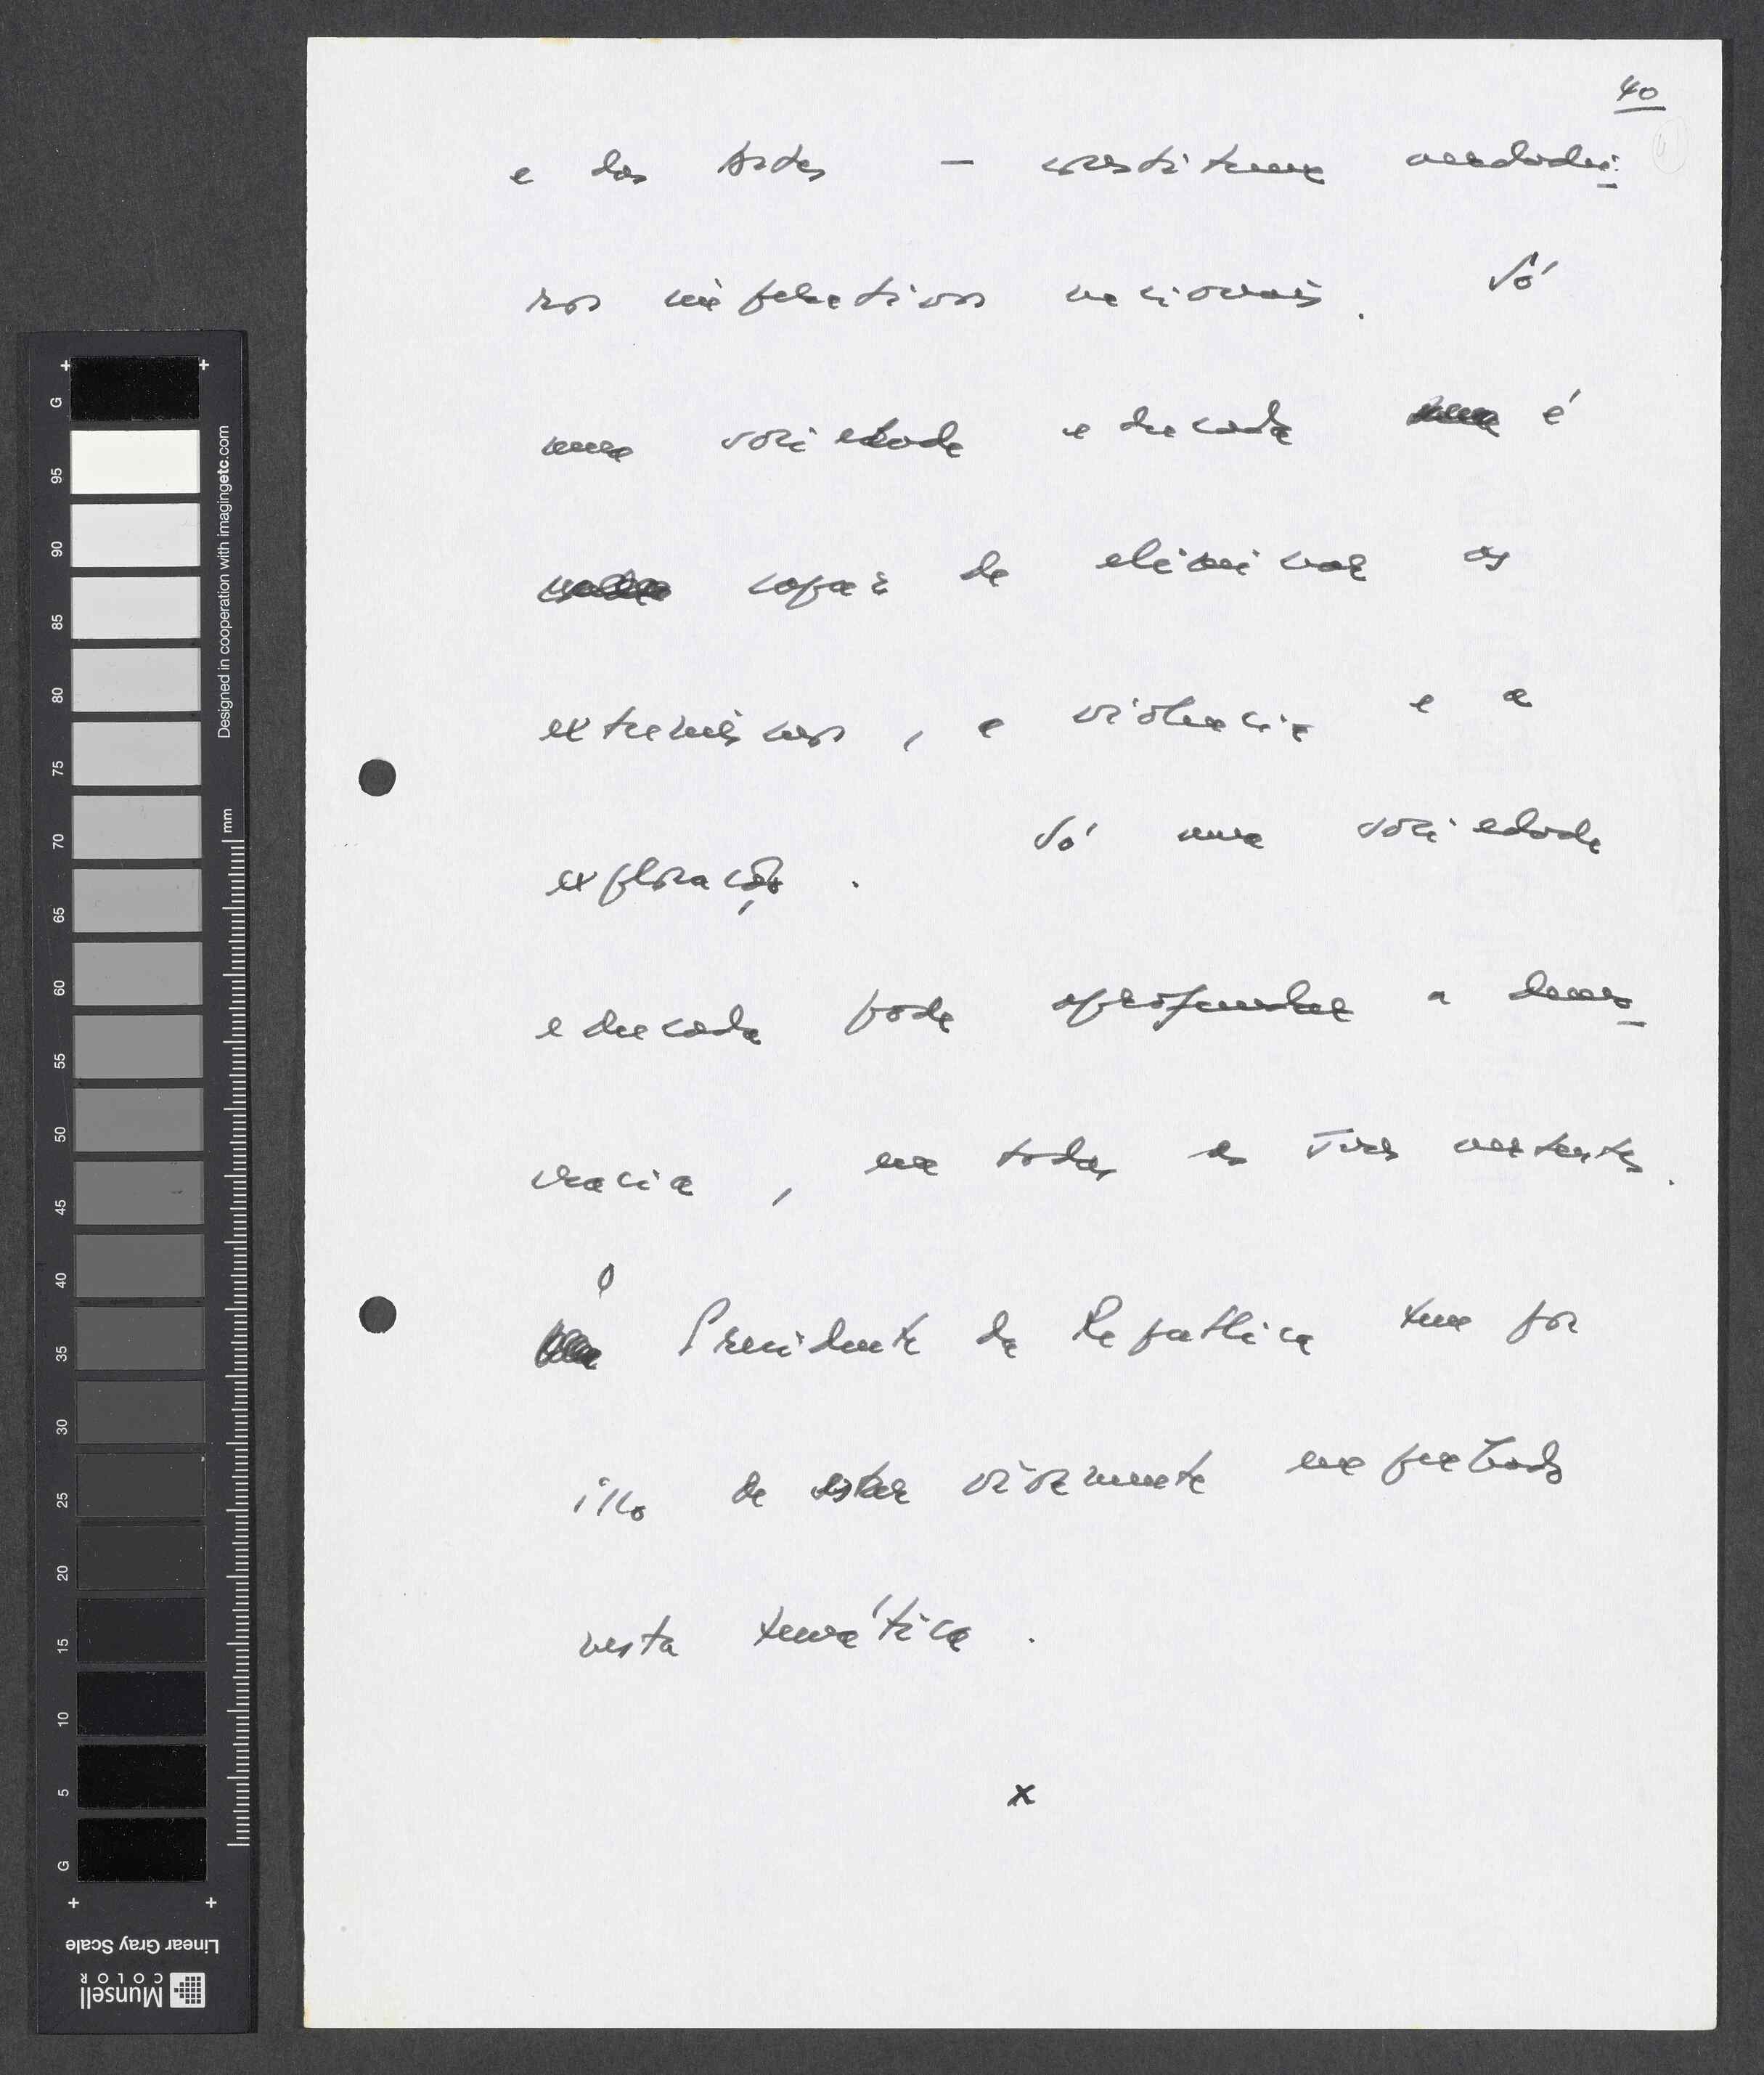 40
e das Artes — constituem verdadei-
ros imperativos nacionais. Só
uma sociedade educada é
capaz de eliminar os
extremismos, a violência e a
exploração. Só uma sociedade
educada pode aprofundar a demo-
cracia, em todas as suas vertentes.
O Presidente da República tem por
isso de estar vivamente empenhado
nesta temática.
x
G
95
90
85
80
75
70
65
60
55
50
45
40
35
30
25
20
15
10
5
G
mm
Designed in cooperation with imagingetc.com
Linear Gray Scale
Munsell
COLOR